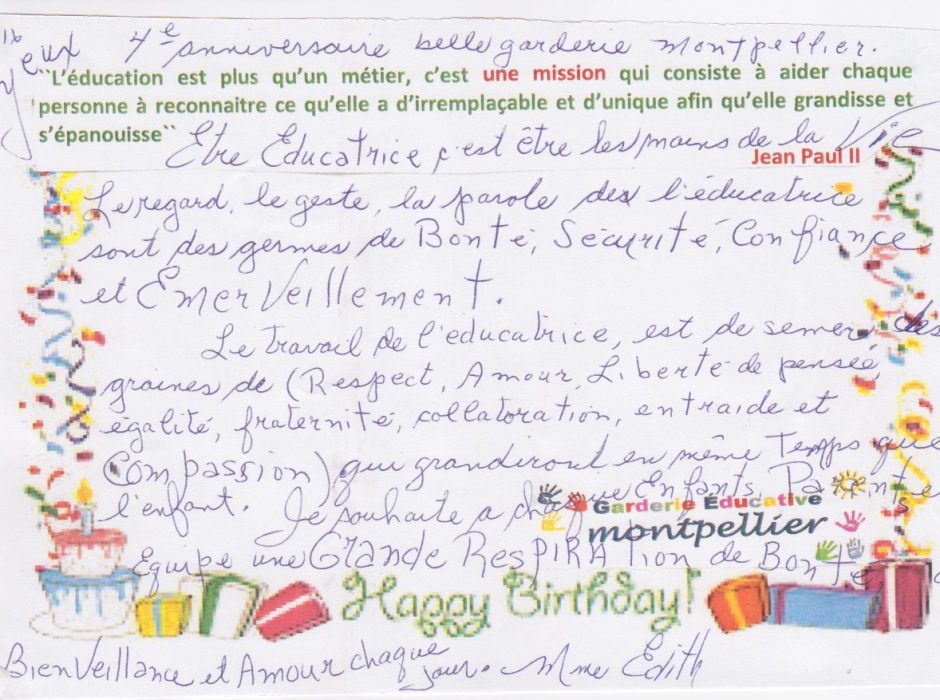 yeux 4e anniversaire belle garderie montpellier.
``L'éducation est plus qu'un métier, c'est une mission qui consiste à aider chaque
personne à reconnaitre ce qu'elle a d'irremplaçable et d'unique afin qu'elle grandisse et
s'épanouisse``
Etre Éducatrice c'est être les mains de la Vie
Jean Paul II
Le regard, le geste, la parole des l'éducatrice
sont des germes de Bonté, Sécurité, Confiance
et EmerVeillement.
Le travail de l'éducatrice, est de semer des
graines de (Respect, Amour, Liberté de pensée,
égalité, fraternité, collatoration, entraide et
Compassion) qui grandiront en même Temps que
l'enfant. Je souhaite a chaque Enfants, Parents
Garderie Éducative
montpellier
Equipe une GRANDE RESPIRATION de Bonté,
Happy Birthday!
BienVeillance et Amour chaque
jour. Mme Edith